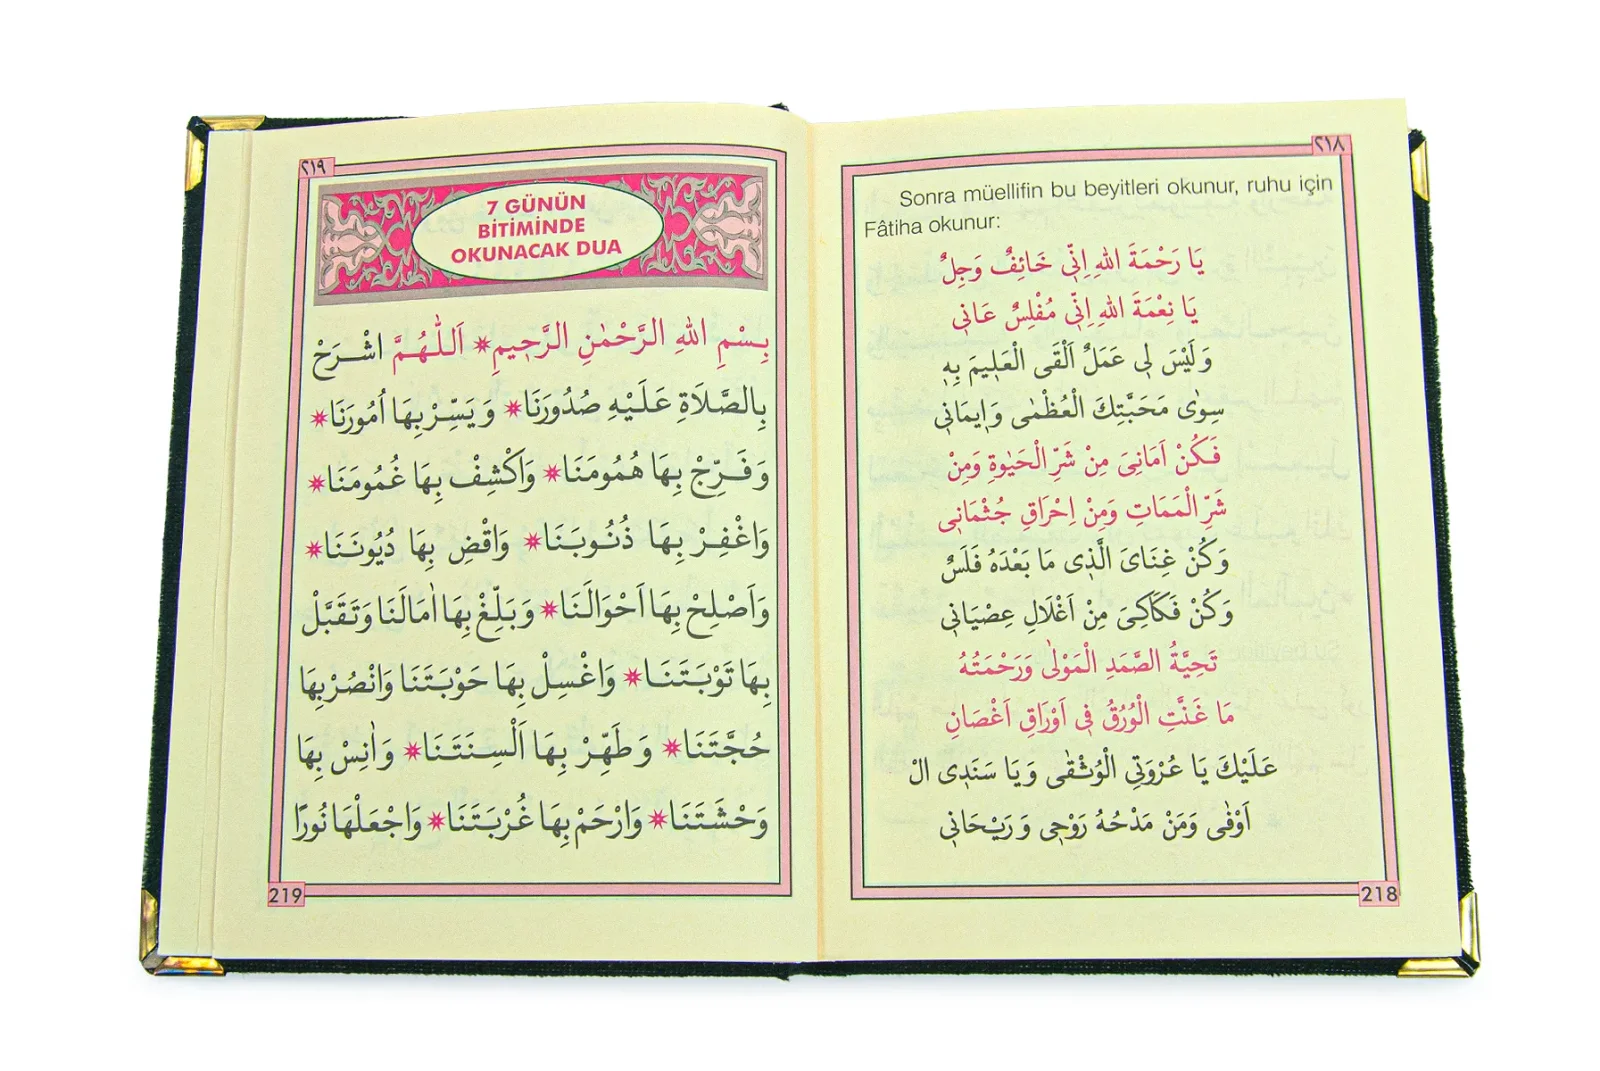 ٢١٨
Sonra müellifin bu beyitleri okunur, ruhu için
Fâtiha okunur:
يَا رَحْمَةَ اللهِ اِنّ۪ى خَائِفٌ وَجِلٌ
يَا نِعْمَةَ اللهِ اِنّ۪ى مُفْلِسٌ عَان۪ى
وَلَيْسَ ل۪ى عَمَلٌ اَلْقَى الْعَل۪يمَ بِه۪
سِوٰى مَحَبَّتِكَ الْعُظْمٰى وَا۪يمَان۪ى
فَكُنْ اَمَانِىَ مِنْ شَرِّ الْحَيٰوةِ وَمِنْ
شَرِّ الْمَمَاتِ وَمِنْ اِحْرَاقِ جُثْمَان۪ى
وَكُنْ غِنَاىَ الَّذ۪ى مَا بَعْدَهُ فَلَسٌ
وَكُنْ فَكَاكِىَ مِنْ اَغْلَالِ عِصْيَان۪ى
تَحِيَّةُ الصَّمَدِ الْمَوْلٰى وَرَحْمَتُهُ
مَا غَنَّتِ الْوُرْقُ ف۪ى اَوْرَاقِ اَغْصَانِ
عَلَيْكَ يَا عُرْوَتِى الْوُثْقٰى وَيَا سَنَد۪ى الْ
اَوْفٰى وَمَنْ مَدْحُهُ رَوْح۪ى وَرَيْحَان۪ى
218
٢١٩
7 GÜNÜN
BİTİMİNDE
OKUNACAK DUA
بِسْمِ اللهِ الرَّحْمٰنِ الرَّح۪يمِ ✷ اَللّٰهُمَّ اشْرَحْ
بِالصَّلَاةِ عَلَيْهِ صُدُورَنَا ✷ وَيَسِّرْ بِهَا اُمُورَنَا ✷
وَفَرِّجْ بِهَا هُمُومَنَا ✷ وَاكْشِفْ بِهَا غُمُومَنَا ✷
وَاغْفِرْ بِهَا ذُنُوبَنَا ✷ وَاقْضِ بِهَا دُيُونَنَا ✷
وَاَصْلِحْ بِهَا اَحْوَالَنَا ✷ وَبَلِّغْ بِهَا اٰمَالَنَا وَتَقَبَّلْ
بِهَا تَوْبَتَنَا ✷ وَاغْسِلْ بِهَا حَوْبَتَنَا وَانْصُرْ بِهَا
حُجَّتَنَا ✷ وَطَهِّرْ بِهَا اَلْسِنَتَنَا ✷ وَاٰنِسْ بِهَا
وَحْشَتَنَا ✷ وَارْحَمْ بِهَا غُرْبَتَنَا ✷ وَاجْعَلْهَا نُورًا
219